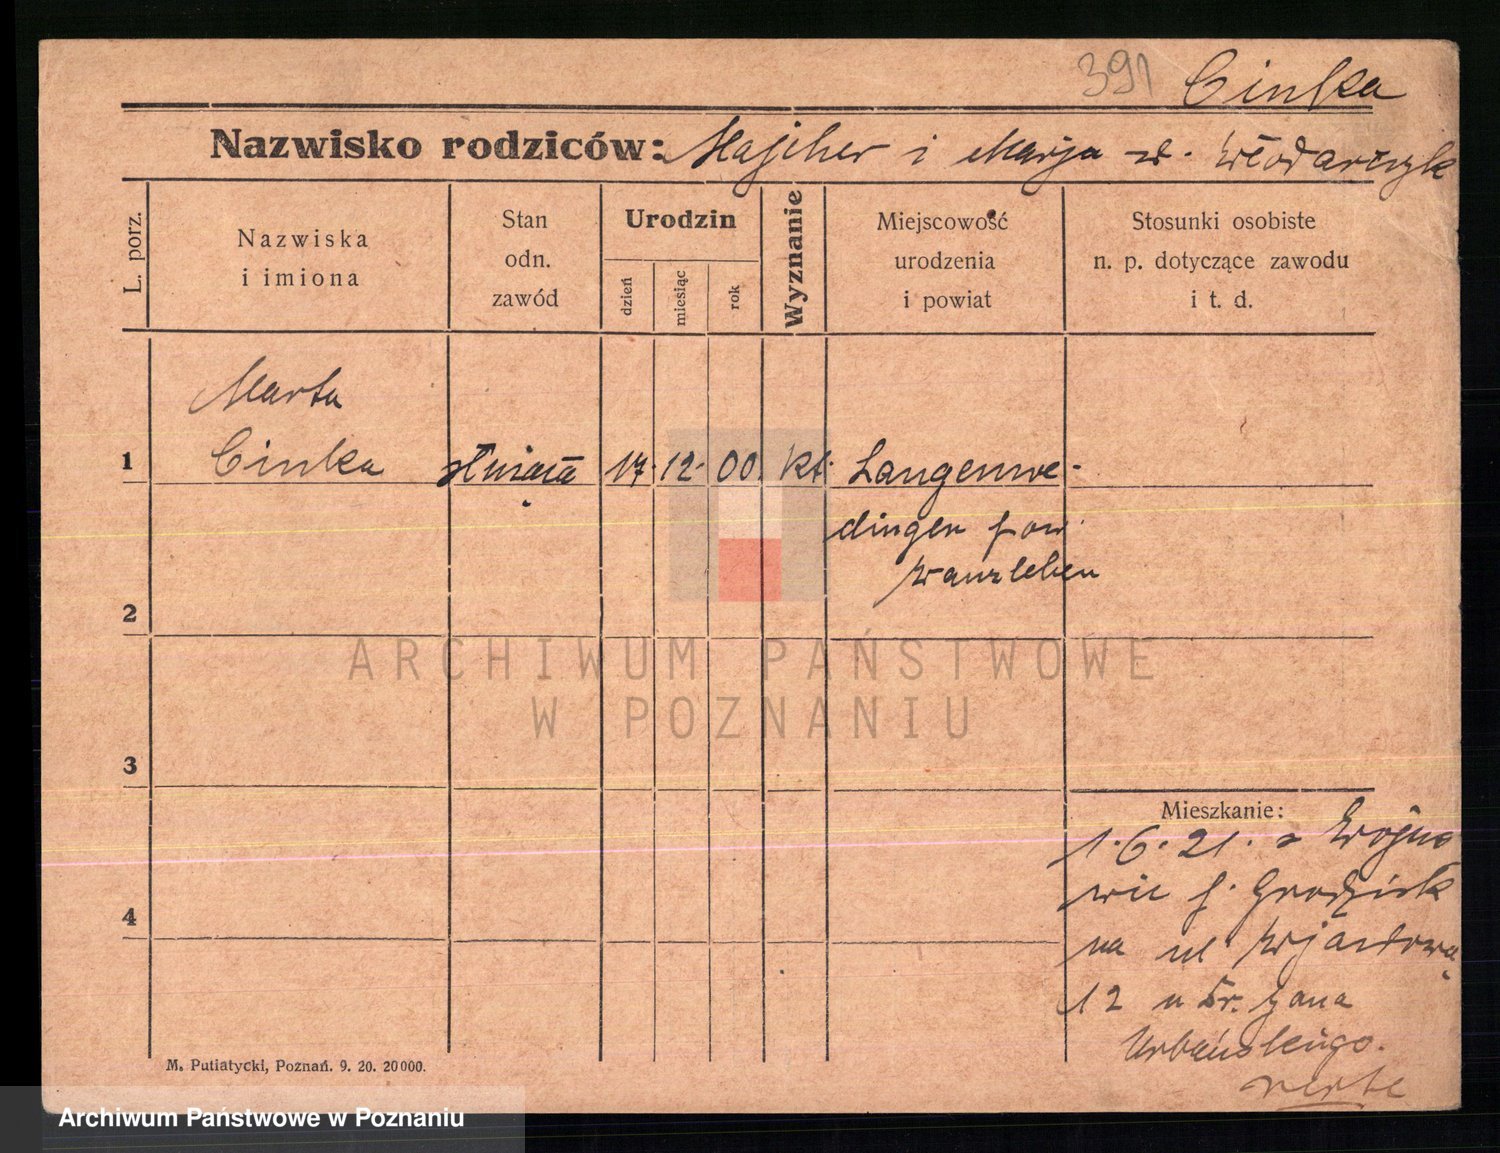 391 Cinka
Nazwisko rodziców: Majcher i Marja z d. Włodarczyk
L. porz.
Nazwiska
i imiona
Stan
odn.
zawód
Urodzin
dzień
miesiąc
rok
Wyznanie
Miejscowość
urodzenia
i powiat
Stosunki osobiste
n. p. dotyczące zawodu
i t. d.
Marta
1 Cinka służąca 17. 12. 00. kt. Langenwe-
dingen pow.
Wanzleben
2
3
Mieszkanie:
1.6.21. z Wojno
wic p. Grodzisk
4
na ul Wjazdową
12 u Dr. Jana
Urbańskiego.
verte
M. Putiatycki, Poznań. 9. 20. 20000.
ARCHIWUM PAŃSTWOWE
W POZNANIU
Archiwum Państwowe w Poznaniu